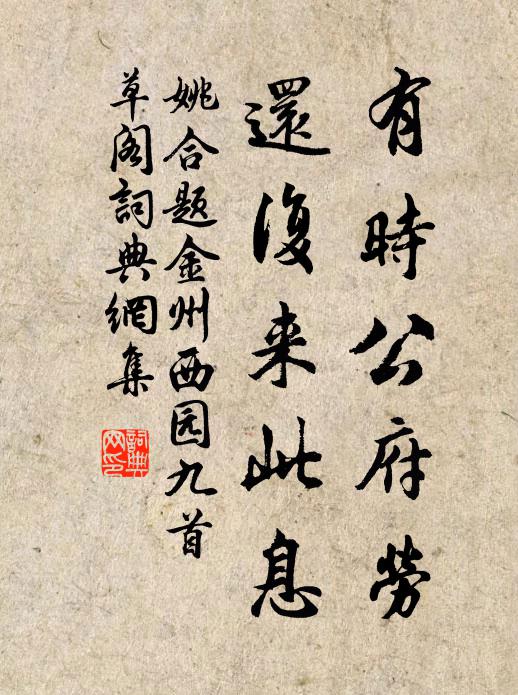 有時公府勞
還復来此息
姚合题金州西园九首
草阁詞典網集
詞典
网印